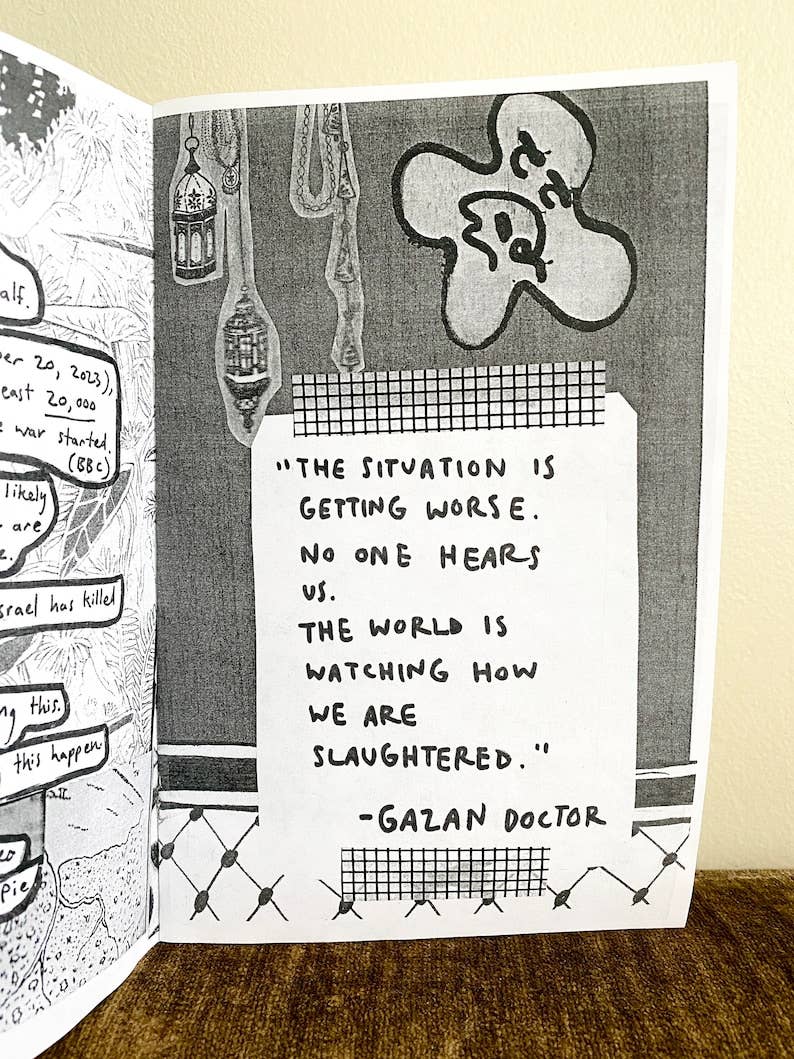 alf.
er 20, 2023),
east 20,000
e war started.
(BBC)
likely
are
e.
srael has killed
ng this.
this happen.
eo
pie
"THE SITUATION IS
GETTING WORSE.
NO ONE HEARS
US.
THE WORLD IS
WATCHING HOW
WE ARE
SLAUGHTERED."
-GAZAN DOCTOR